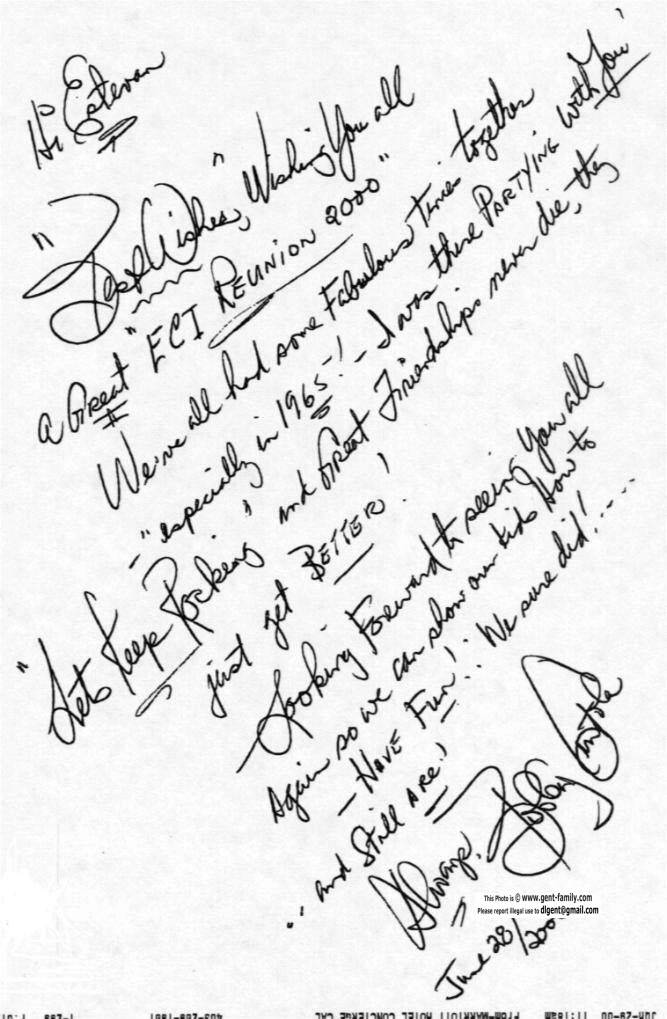 Hi Estevan
"Best Wishes", Wishing You all
a Great "ECI REUNION 2000"
We've all had some Fabulous Times together
- "especially in 1965-! - I was there PARTYING with You"
"Lets Keep Rocking" and Great Friendships never die, they
just get BETTER!
Looking Forward to seeing You all
Again so we can show our kids How to
- HAVE FUN!. We sure did!.....
... and Still ARE!
Always, Bobby Curtola
June 28/2000
This Photo is © www.gent-family.com
Please report illegal use to digent@gmail.com
JUN-29-00 11:18AM FROM-MARRIOTT HOTEL CONCIERGE CAL